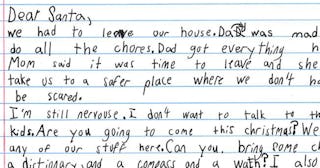 Dear Santa,
we had to leave our house. Dad was mad.
do all the chores. Dad got everything h
Mom said it was time to leave and she
take us to a safer place where we don't ha
be scared.
I'm still nervouse. I don't want to talk to th
kids. Are you going to come this christmas? We
any of our stuff here. Can you bring some
a dictionary and a compass and a wath? I also